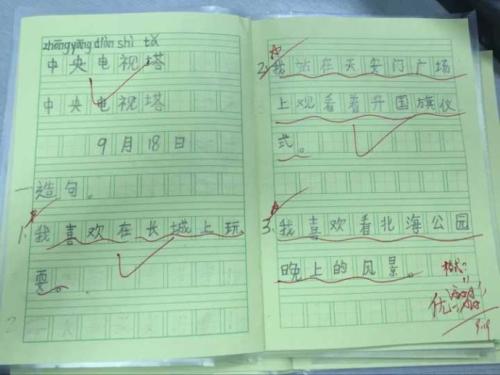 zhōng yāng diàn shì tǎ
中央电视塔
中央电视塔
9月18日
一造句。
1.我喜欢在长城上玩
耍。
2.我站在天安门广场
上观看着升国旗仪
式。
3.我喜欢看北海公园
晚上的风景。
优
9.19